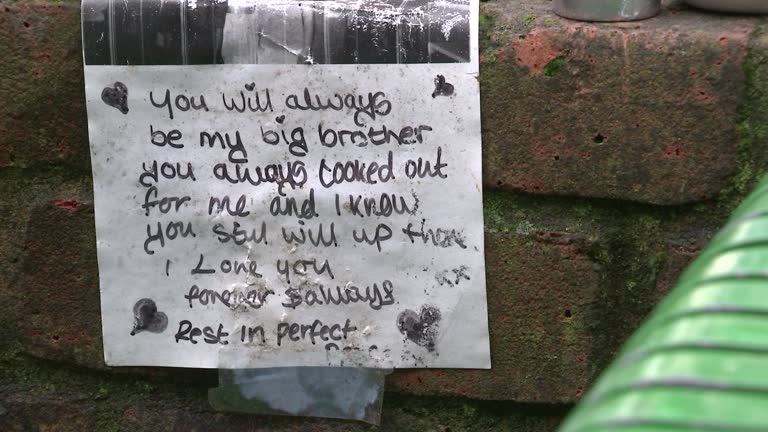 You will always
be my big brother
you always looked out
for me and I know
you still will up there
I Love you xx
forever & always
Rest in perfect